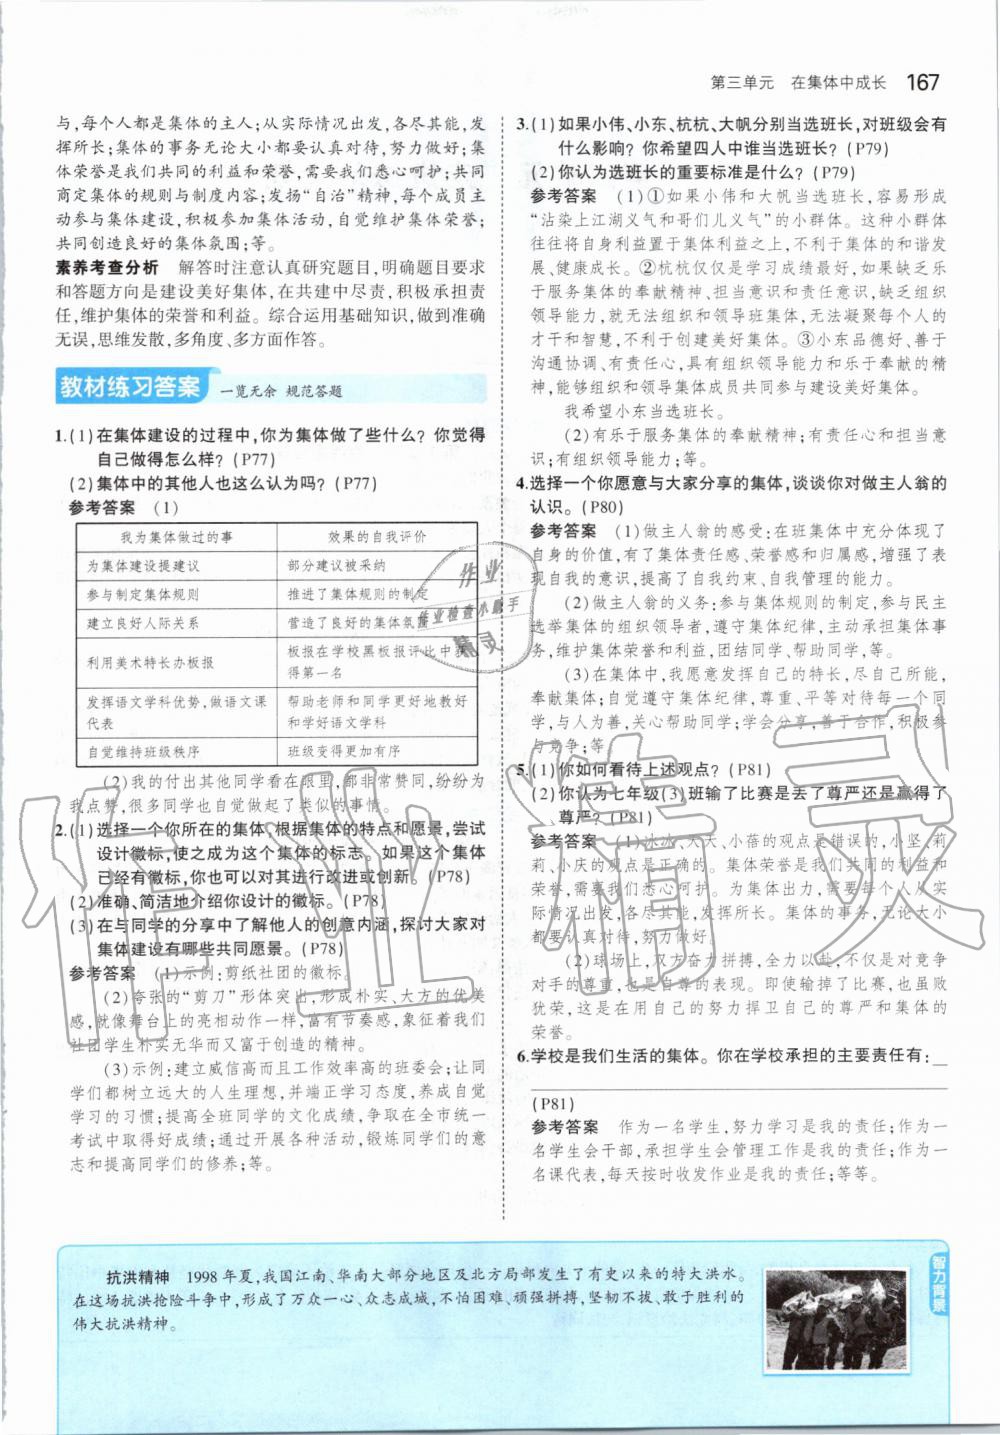 第三单元 在集体中成长 167
与,每个人都是集体的主人;从实际情况出发,各尽其能,发
挥所长;集体的事务无论大小都要认真对待,努力做好;集
体荣誉是我们共同的利益和荣誉,需要我们悉心呵护;共同
商定集体的规则与制度内容;发扬“自治”精神,每个成员主
动参与集体建设,积极参加集体活动,自觉维护集体荣誉;
共同创造良好的集体氛围;等。
素养考查分析 解答时注意认真研究题目,明确题目要求
和答题方向是建设美好集体,在共建中尽责,积极承担责
任,维护集体的荣誉和利益。综合运用基础知识,做到准确
无误,思维发散,多角度、多方面作答。
教材练习答案 一览无余 规范答题
1.(1)在集体建设的过程中,你为集体做了些什么?你觉得
自己做得怎么样?(P77)
(2)集体中的其他人也这么认为吗?(P77)
参考答案 (1)
我为集体做过的事 效果的自我评价
为集体建设提建议 部分建议被采纳
参与制定集体规则 推进了集体规则的制定
建立良好人际关系 营造了良好的集体氛围
利用美术特长办板报 板报在学校黑板报评比中获
得第一名
发挥语文学科优势,做语文课
代表
帮助老师和同学更好地教好
和学好语文学科
自觉维持班级秩序 班级变得更加有序
(2)我的付出其他同学看在眼里,都非常赞同,纷纷为
我点赞,很多同学也自觉做起了类似的事情。
2.(1)选择一个你所在的集体,根据集体的特点和愿景,尝试
设计徽标,使之成为这个集体的标志。如果这个集体
已经有徽标,你也可以对其进行改进或创新。(P78)
(2)准确、简洁地介绍你设计的徽标。(P78)
(3)在与同学的分享中了解他人的创意内涵,探讨大家对
集体建设有哪些共同愿景。(P78)
参考答案 (1)示例:剪纸社团的徽标。
(2)夸张的“剪刀”形体突出,形成朴实、大方的优美
感,就像舞台上的亮相动作一样,富有节奏感,象征着我们
社团学生朴实无华而又富于创造的精神。
(3)示例:建立威信高而且工作效率高的班委会;让同
学们都树立远大的人生理想,并端正学习态度,养成自觉
学习的习惯;提高全班同学的文化成绩,争取在全市统一
考试中取得好成绩;通过开展各种活动,锻炼同学们的意
志和提高同学们的修养;等。
3.(1)如果小伟、小东、杭杭、大帆分别当选班长,对班级会有
什么影响?你希望四人中谁当选班长?(P79)
(2)你认为选班长的重要标准是什么?(P79)
参考答案 (1)①如果小伟和大帆当选班长,容易形成
“沾染上江湖义气和哥们儿义气”的小群体。这种小群体
往往将自身利益置于集体利益之上,不利于集体的和谐发
展、健康成长。②杭杭仅仅是学习成绩最好,如果缺乏乐
于服务集体的奉献精神、担当意识和责任意识,缺乏组织
领导能力,就无法组织和领导班集体,无法凝聚每个人的
才干和智慧,不利于创建美好集体。③小东品德好、善于
沟通协调、有责任心,具有组织领导能力和乐于奉献的精
神,能够组织和领导集体成员共同参与建设美好集体。
我希望小东当选班长。
(2)有乐于服务集体的奉献精神;有责任心和担当意
识;有组织领导能力;等。
4.选择一个你愿意与大家分享的集体,谈谈你对做主人翁的
认识。(P80)
参考答案 (1)做主人翁的感受:在班集体中充分体现了
自身的价值,有了集体责任感、荣誉感和归属感,增强了表
现自我的意识,提高了自我约束、自我管理的能力。
(2)做主人翁的义务:参与集体规则的制定,参与民主
选举集体的组织领导者,遵守集体纪律,主动承担集体事
务,维护集体荣誉和利益,团结同学、帮助同学,等。
(3)在集体中,我愿意发挥自己的特长,尽己所能,
奉献集体;自觉遵守集体纪律,尊重、平等对待每一个同
学,与人为善,关心帮助同学;学会分享,善于合作,积极参
与竞争;等。
5.(1)你如何看待上述观点?(P81)
(2)你认为七年级(3)班输了比赛是丢了尊严还是赢得了
尊严?(P81)
参考答案 (1)冰冰、天天、小蓓的观点是错误的,小坚、莉
莉、小庆的观点是正确的。集体荣誉是我们共同的利益和
荣誉,需要我们悉心呵护。为集体出力,需要每个人从实
际情况出发,各尽其能,发挥所长。集体的事务,无论大小
都要认真对待,努力做好。
(2)球场上,双方奋力拼搏,全力以赴,不仅是对竞争
对手的尊重,也是自尊的表现。即使输掉了比赛,也虽败
犹荣,这是在用自己的努力捍卫自己的尊严和集体的
荣誉。
6.学校是我们生活的集体。你在学校承担的主要责任有:
(P81)
参考答案 作为一名学生,努力学习是我的责任;作为一
名学生会干部,承担学生会管理工作是我的责任;作为一
名课代表,每天按时收发作业是我的责任;等等。
作业
作业检查小助手
精灵
作业精灵
智力背景
抗洪精神 1998年夏,我国江南、华南大部分地区及北方局部发生了有史以来的特大洪水。
在这场抗洪抢险斗争中,形成了万众一心、众志成城,不怕困难、顽强拼搏,坚韧不拔、敢于胜利的
伟大抗洪精神。